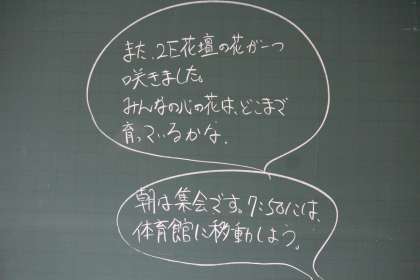 また、2E花壇の花が一つ
咲きました。
みんなの心の花は、どこまで
育っているかな.
朝は集会です。7:50には、
体育館に移動しよう。